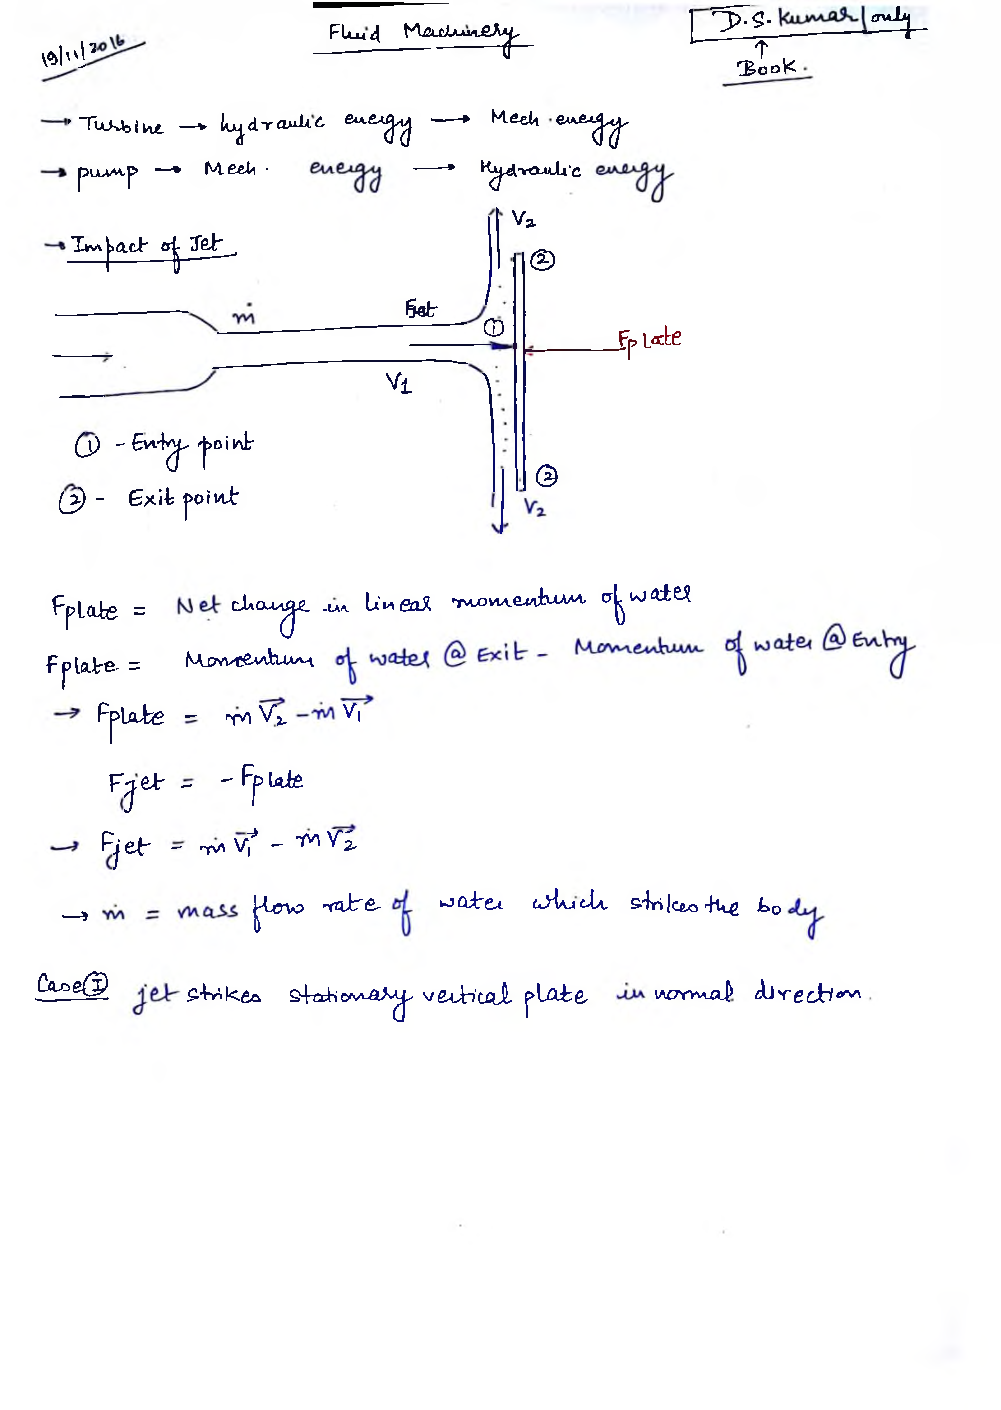 19/11/2016
Fluid Machinery
D.S. Kumar only
↑
Book.
→ Turbine → hydraulic energy → Mech. energy
→ pump → Mech. energy → Hydraulic energy
→ Impact of Jet
V2
②
ṁ
Fjet
①
Fplate
V1
① - Entry point
②
② - Exit point
V2
Fplate = Net change in linear momentum of water
Fplate = Momentum of water @ Exit - Momentum of water @ Entry
→ Fplate = ṁ V⃗2 - ṁ V⃗1
Fjet = - Fplate
→ Fjet = ṁ V⃗1 - ṁ V⃗2
→ ṁ = mass flow rate of water which strikes the body
Case Ⓘ jet strikes stationary vertical plate in normal direction.